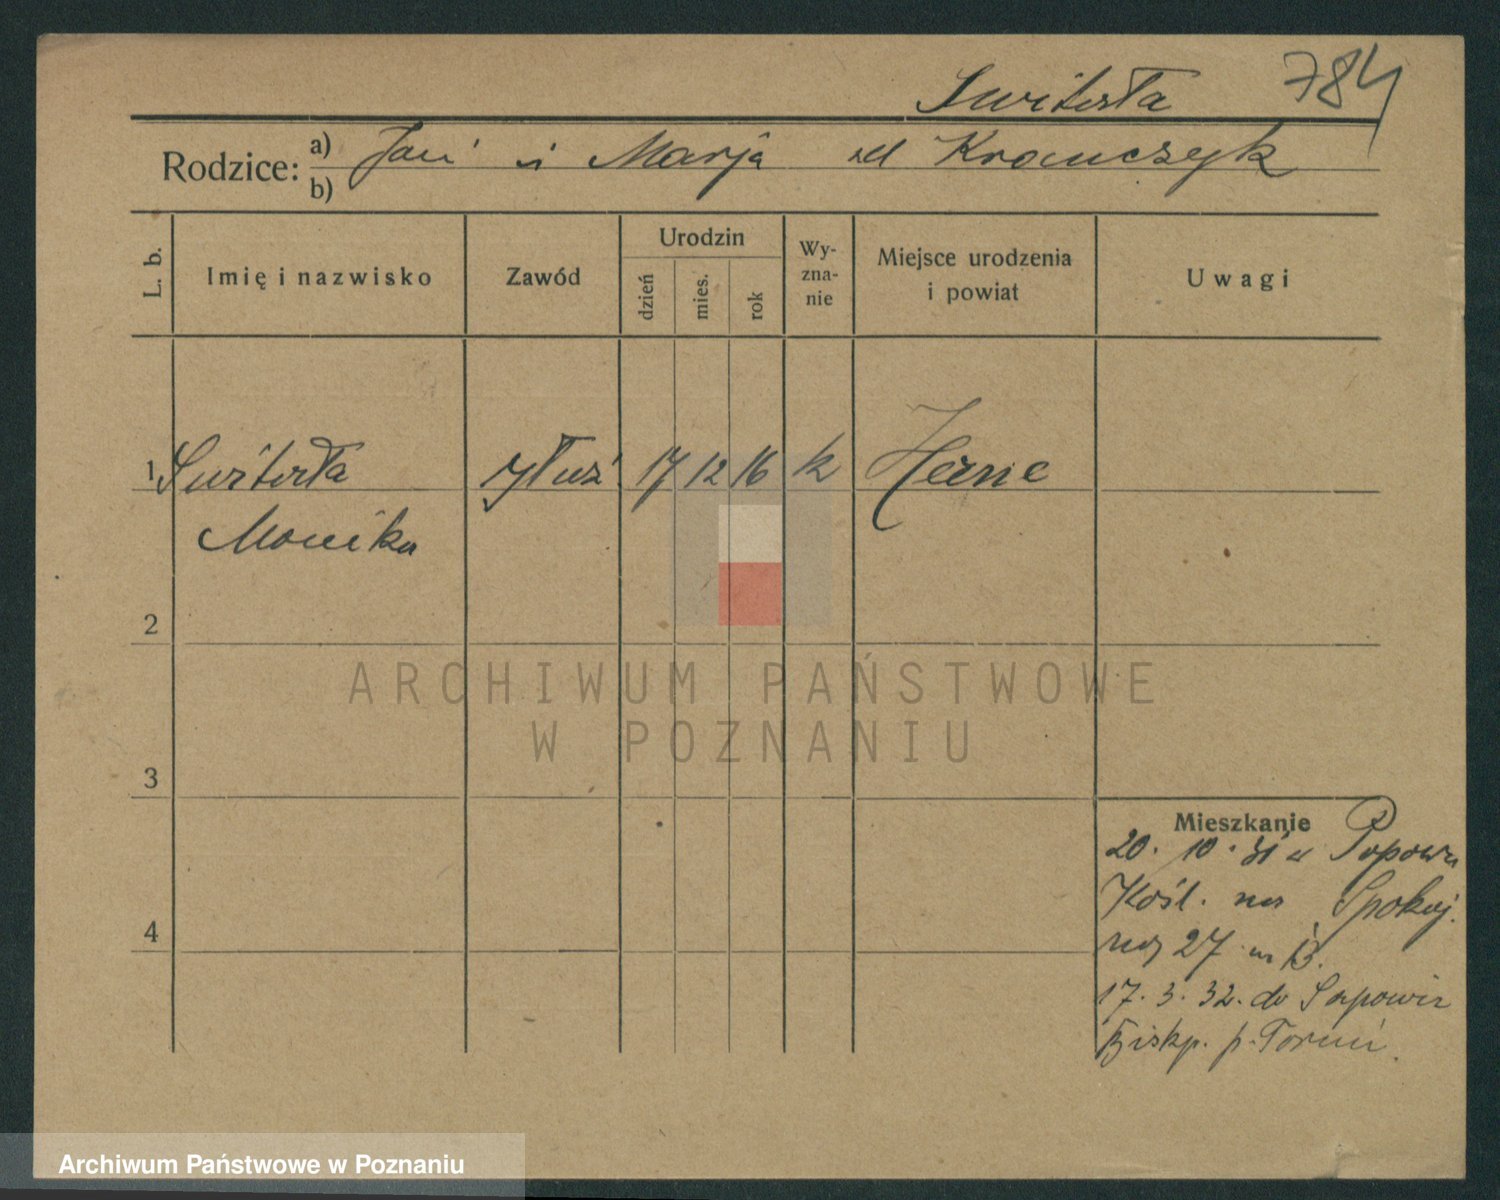 784
Rodzice: a) Jan i Marja zd Krawczyk
b)
L. b.
Imię i nazwisko
Zawód
Urodzin
dzień
mies.
rok
Wy-
zna-
nie
Miejsce urodzenia
i powiat
Uwagi
1 służ. 17 12 16 k Herne
Monika
2
3
4
Mieszkanie
20. 10. 31 z Popowa
Kośl. na Spokoj.
nej 27 m 13.
17. 3. 32. do
Biskp. p. Toruń.
ARCHIWUM PAŃSTWOWE
W POZNANIU
Archiwum Państwowe w Poznaniu